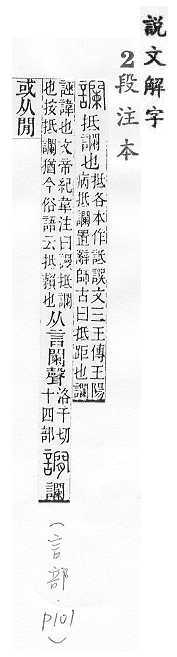 說文解字
2段注本
讕 抵讕也 抵各本作詆誤文三王傳王陽
病抵讕置辭師古曰抵距也讕
誣諱也文帝紀韋注曰謾抵讕
也按抵讕猶今俗語云抵賴也 从言闌聲 洛干切
十四部 讕
或从閒
(言部.p101)